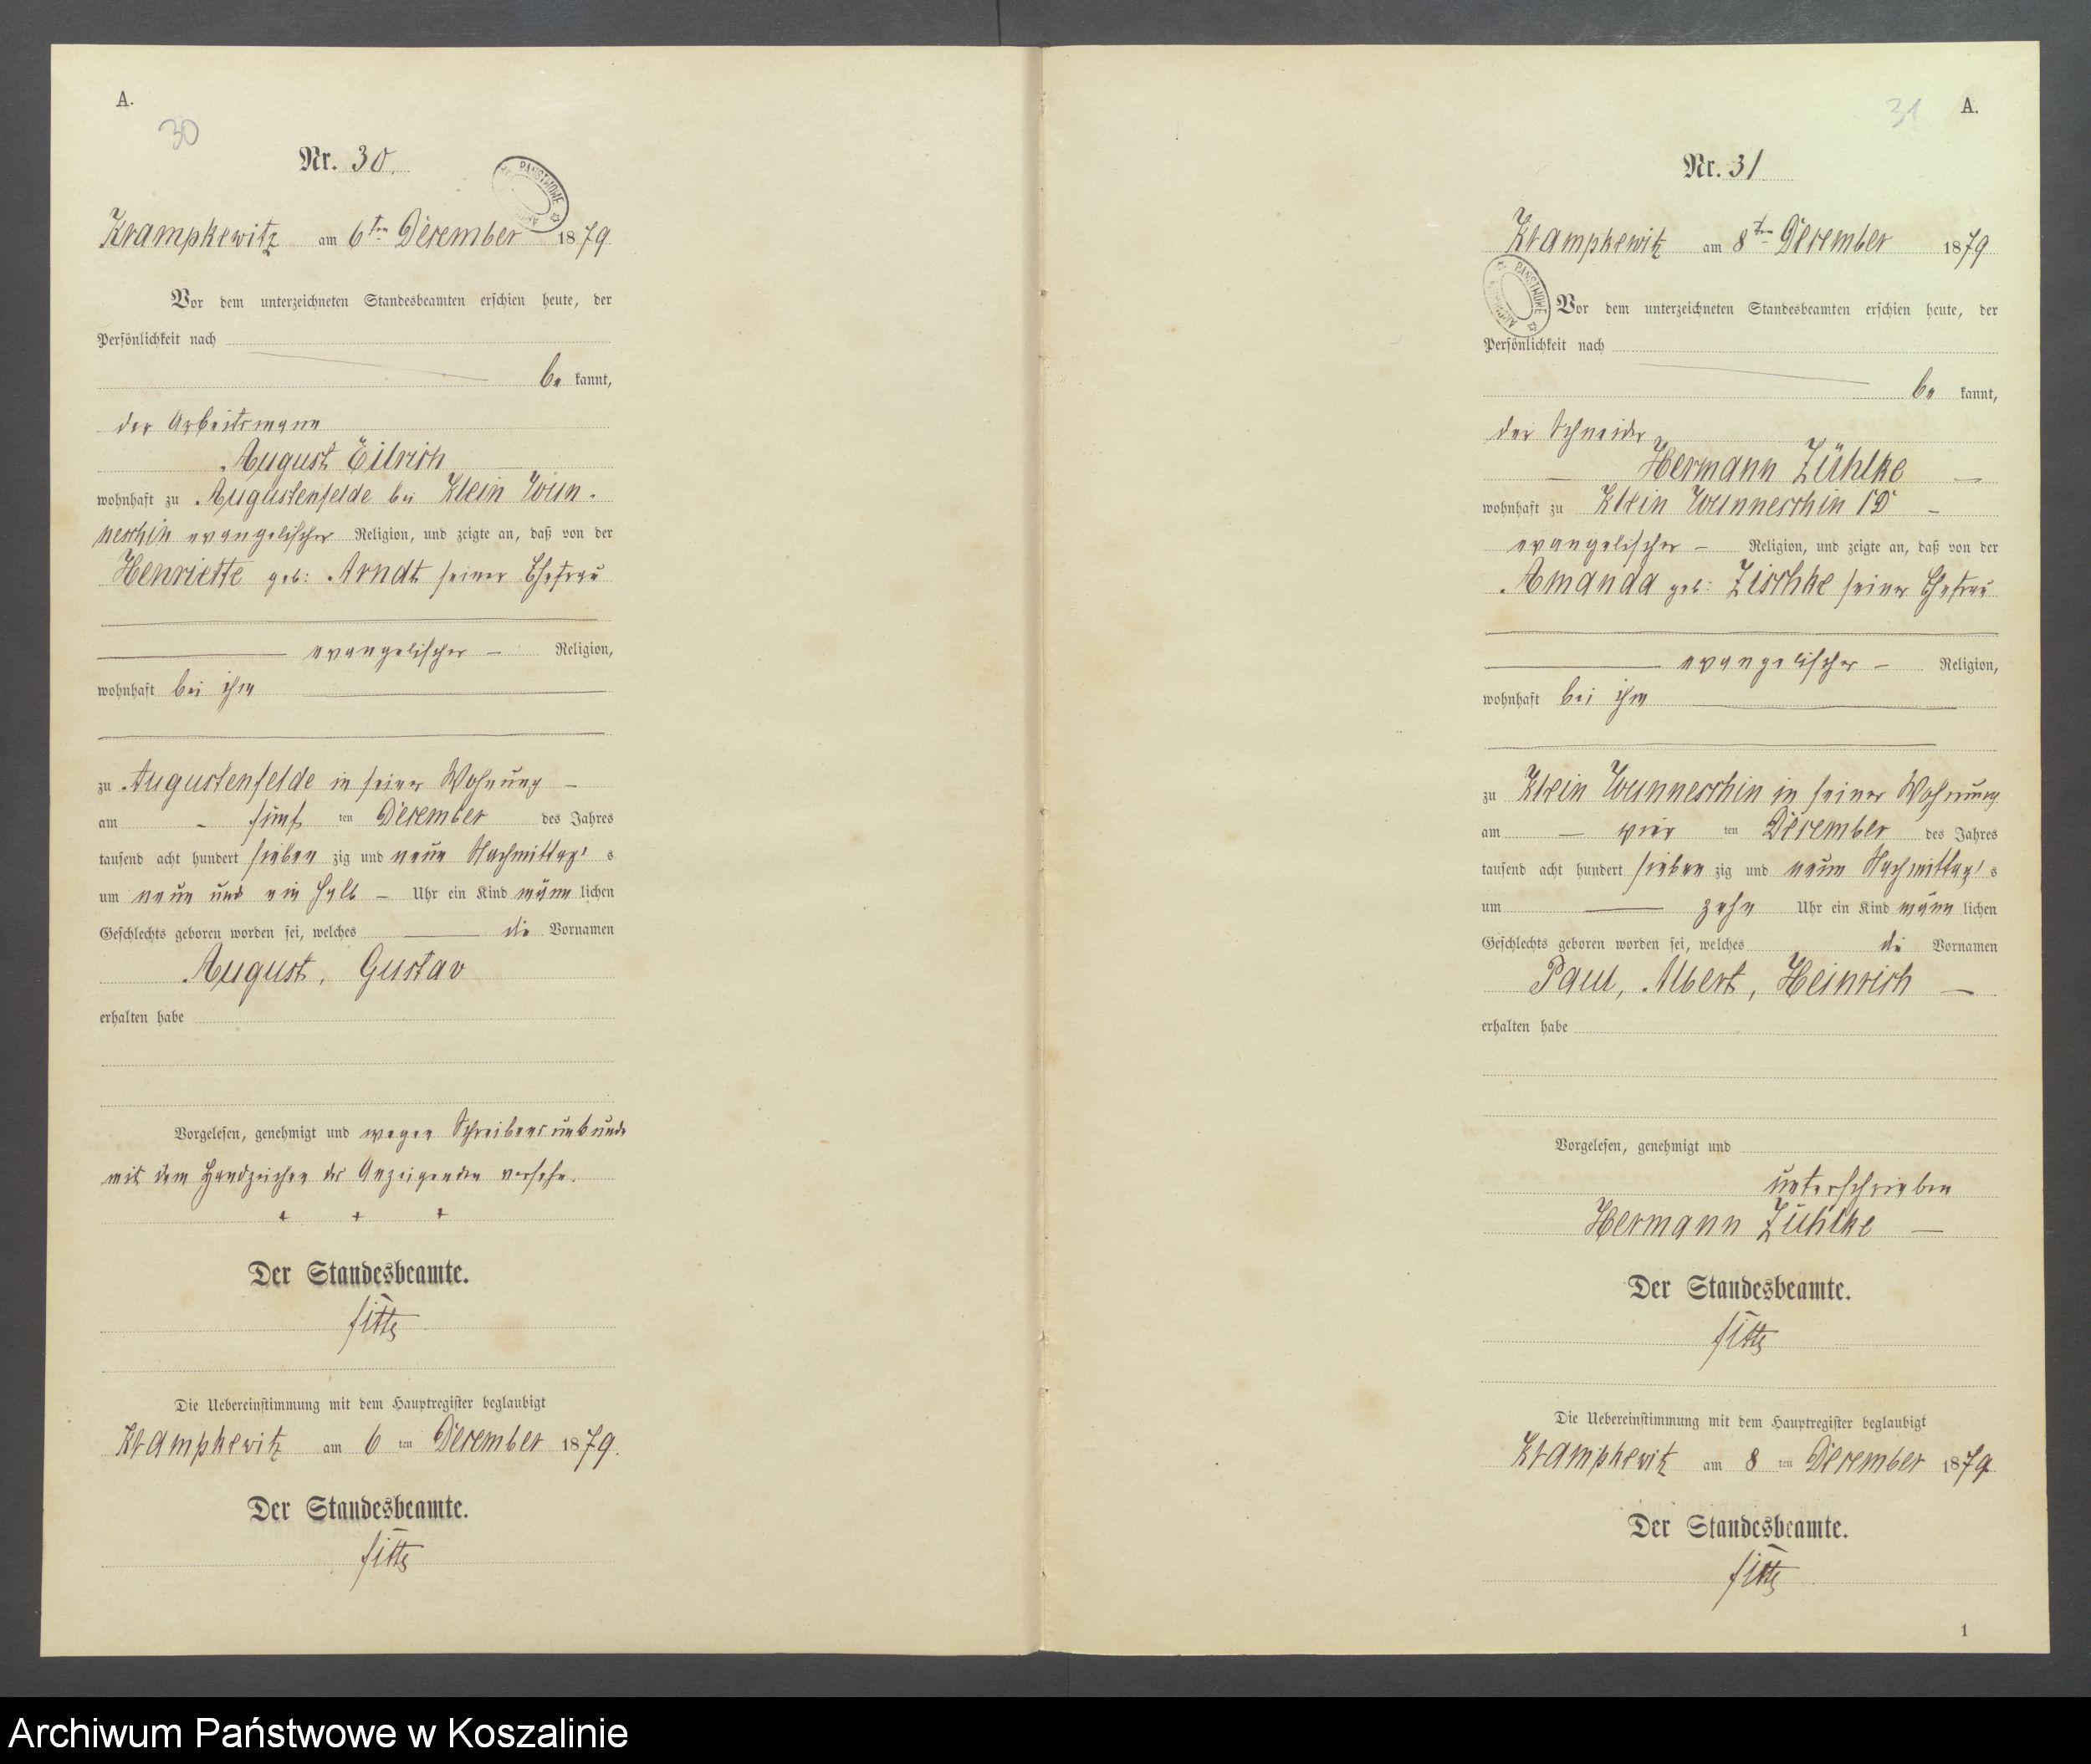 A.
30
Nr. 30.
PAŃSTWOWE
Krampkewitz am 6ten December 1879.
Vor dem unterzeichneten Standesbeamten erschien heute, der
Persönlichkeit nach
be kannt,
der Arbeitsmann
August Eilrich
wohnhaft zu Augustenfelde bei Klein Wun-
neschin evangelischer Religion, und zeigte an, daß von der
Henriette geb: Arndt seiner Ehefrau
evangelischer Religion,
wohnhaft bei ihm
zu Augustenfelde in seiner Wohnung
am fünf ten December des Jahres
tausend acht hundert sieben zig und neun Nachmittag's
um neun und ein halb Uhr ein Kind männ lichen
Geschlechts geboren worden sei, welches die Vornamen
August, Gustav
erhalten habe
Vorgelesen, genehmigt und wegen Schreibensunkunde
mit dem Handzeichen des Anzeigenden versehn.
+ + +
Der Standesbeamte.
Die Uebereinstimmung mit dem Hauptregister beglaubigt
Krampkewitz am 6 ten December 1879.
Der Standesbeamte.
31
A.
Nr. 31
Krampkewitz am 8ten December 1879
PAŃSTWOWE
Vor dem unterzeichneten Standesbeamten erschien heute, der
Persönlichkeit nach
be kannt,
der Schneider
Hermann Zühlke
wohnhaft zu Klein Wunneschin
evangelischer Religion, und zeigte an, daß von der
Amanda geb: Zischke seiner Ehefrau
evangelischer Religion,
wohnhaft bei ihm
zu Klein Wunneschin in seiner Wohnung
am vier ten December des Jahres
tausend acht hundert sieben zig und neun Nachmittag's
um zehn Uhr ein Kind männ lichen
Geschlechts geboren worden sei, welches die Vornamen
Paul, Albert, Heinrich
erhalten habe
Vorgelesen, genehmigt und
unterschrieben
Hermann Zühlke
Der Standesbeamte.
Die Uebereinstimmung mit dem Hauptregister beglaubigt
Krampkewitz am 8 ten December 1879
Der Standesbeamte.
1
Archiwum Państwowe w Koszalinie